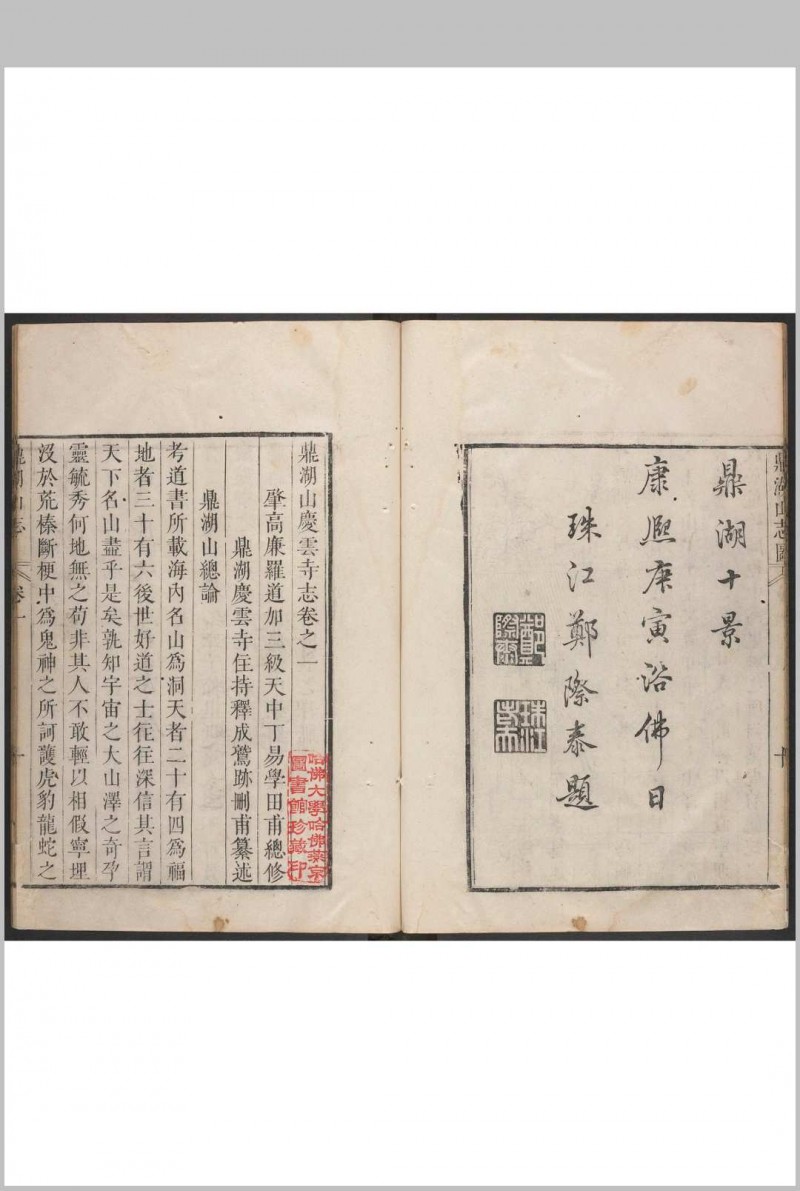 鼎湖山志圖
鼎湖十景
康熙庚寅浴佛日
珠江鄭際泰題
鄭際泰
珠江
鼎湖山慶雲寺志卷之一
肇高廉羅道加三級天中丁易學田甫總修
鼎湖慶雲寺住持釋成鷲跡刪甫纂述
鼎湖山總論
考道書所載海內名山爲洞天者二十有四爲福
地者三十有六後世好道之士徃徃深信其言謂
天下名山盡乎是矣孰知宇宙之大山澤之奇孕
靈毓秀何地無之苟非其人不敢輕以相假寧埋
沒於荒榛斷梗中爲鬼神之所訶護虎豹龍蛇之
鼎湖山志
卷一
一
哈佛大學哈佛燕京
圖書館珍藏印